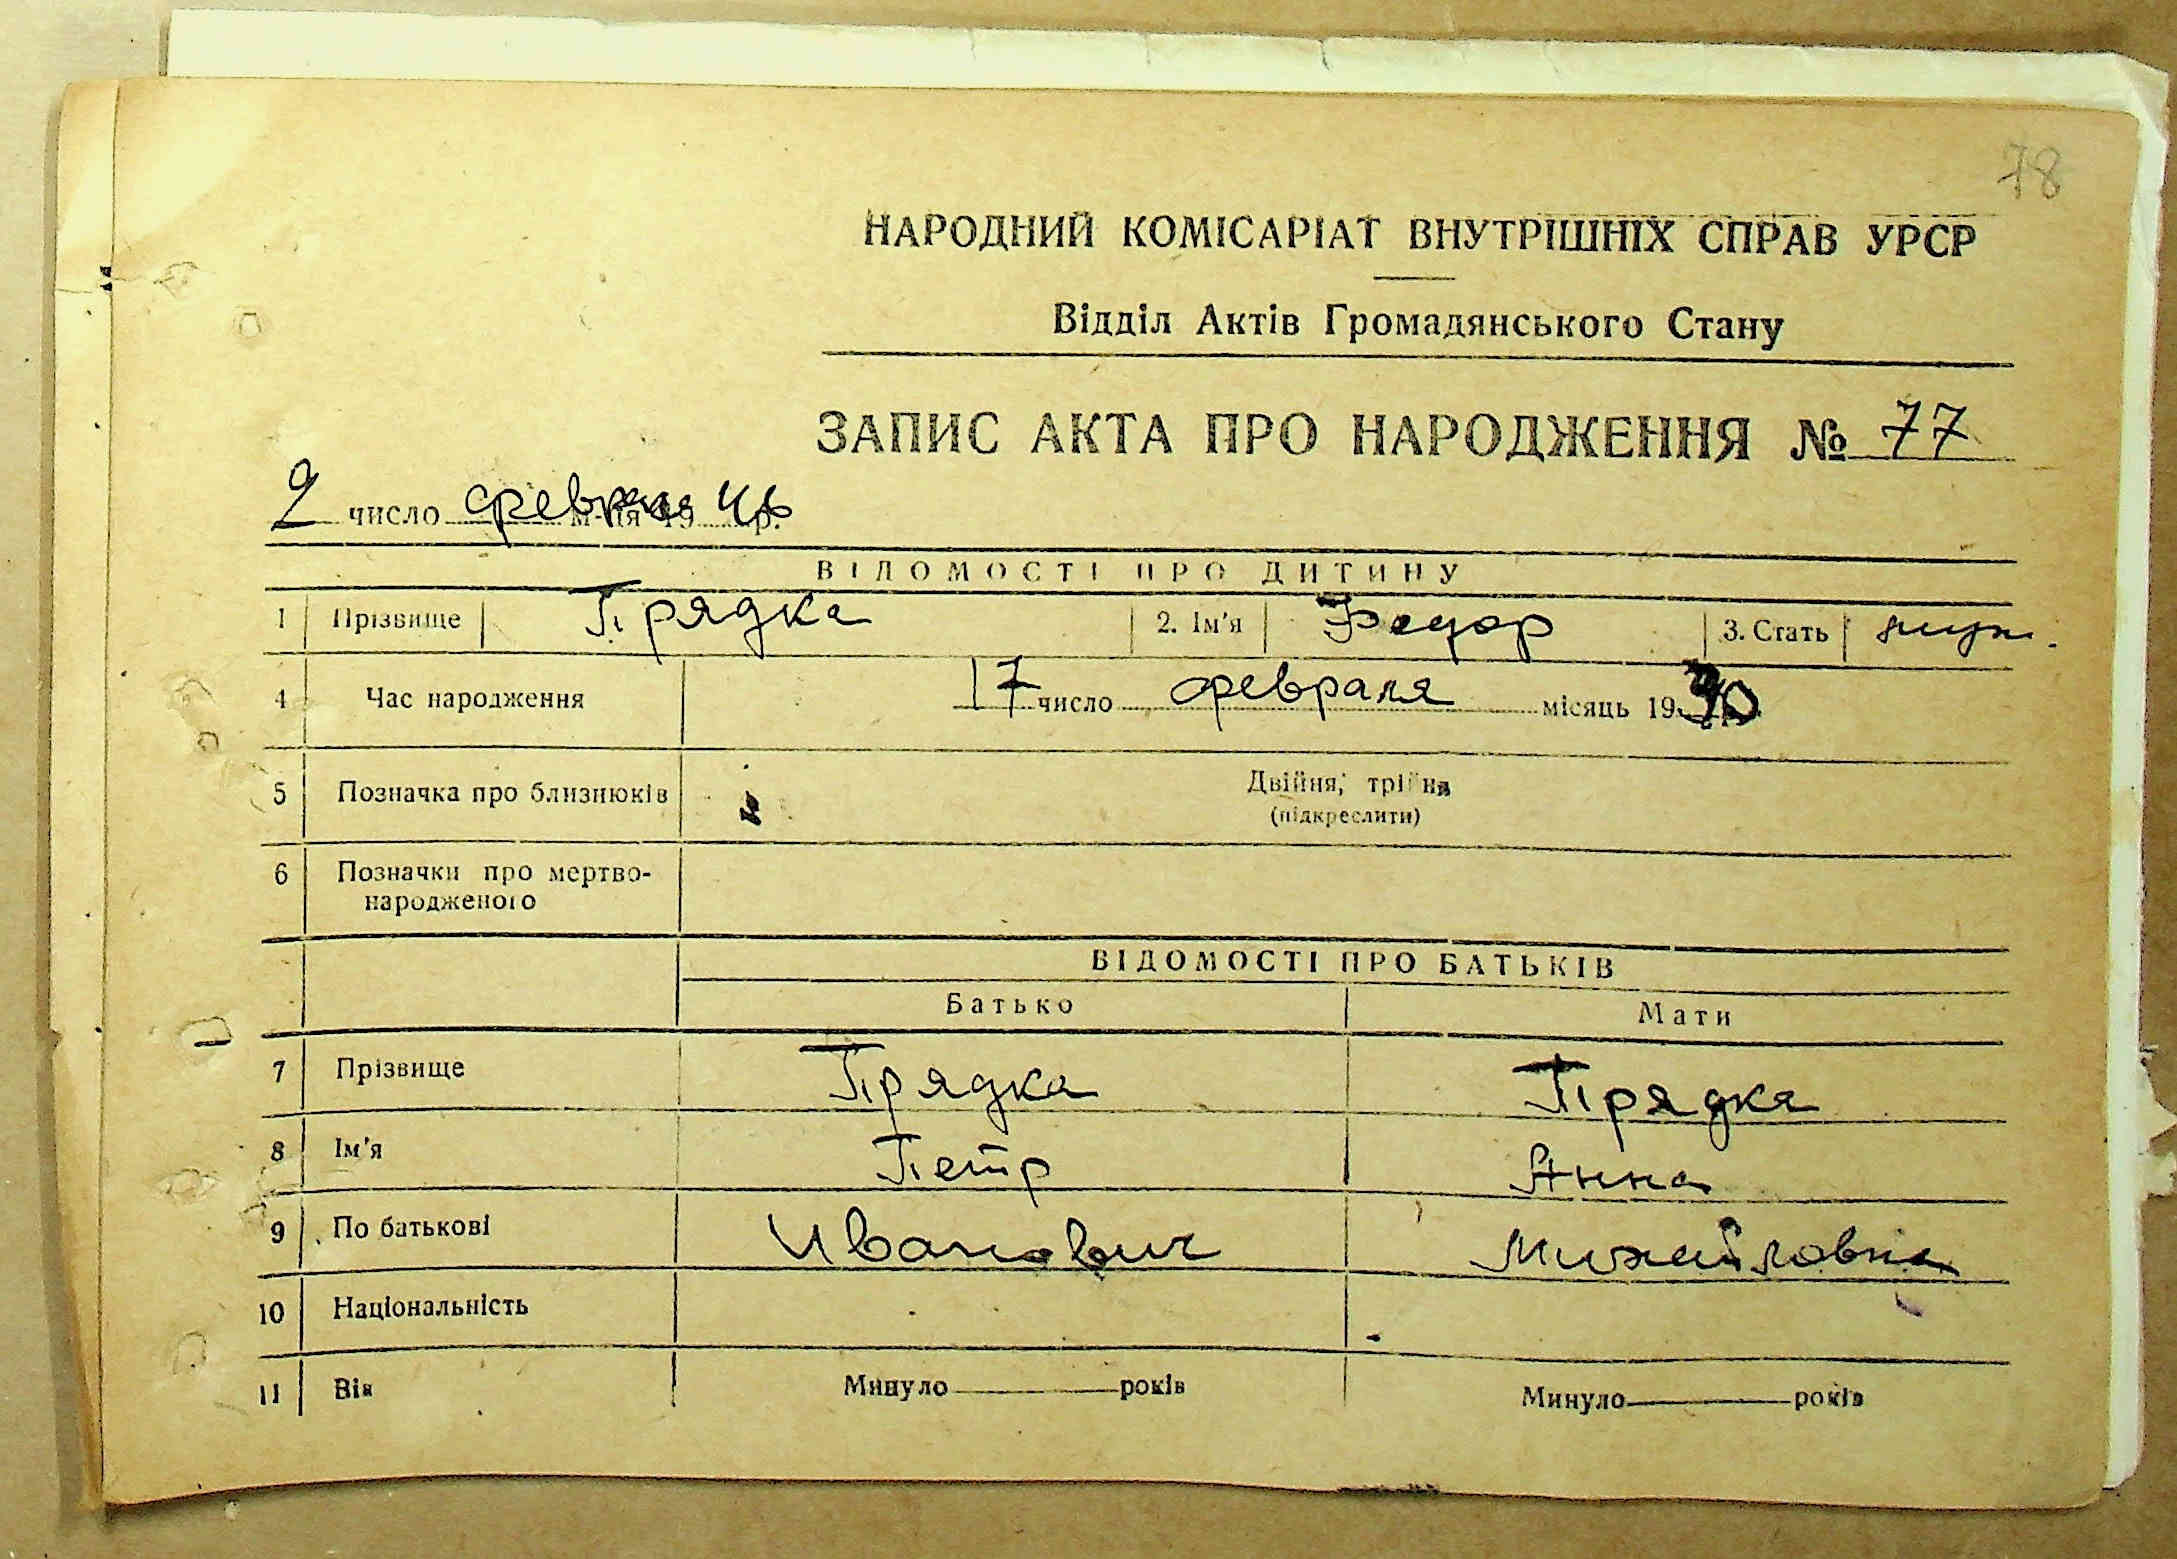 78
НАРОДНИЙ КОМІСАРІАТ ВНУТРІШНІХ СПРАВ УРСР
Відділ Актів Громадянського Стану
ЗАПИС АКТА ПРО НАРОДЖЕННЯ № 77
2 число февраля м-ця 19 р.
ВІДОМОСТІ ПРО ДИТИНУ
1 Прізвище Прядка 2. Ім'я Федор 3. Стать муж.
4 Час народження 17 число февраля місяць 19
5 Позначка про близнюків Двійня, трійня
(підкреслити)
6 Позначки про мертво-
народженого
ВІДОМОСТІ ПРО БАТЬКІВ
Батько Мати
7 Прізвище Прядка Прядка
8 Ім'я Петр Анна
9 По батькові Иванович Михайловна
10 Національність
11 Вік Минуло років Минуло років